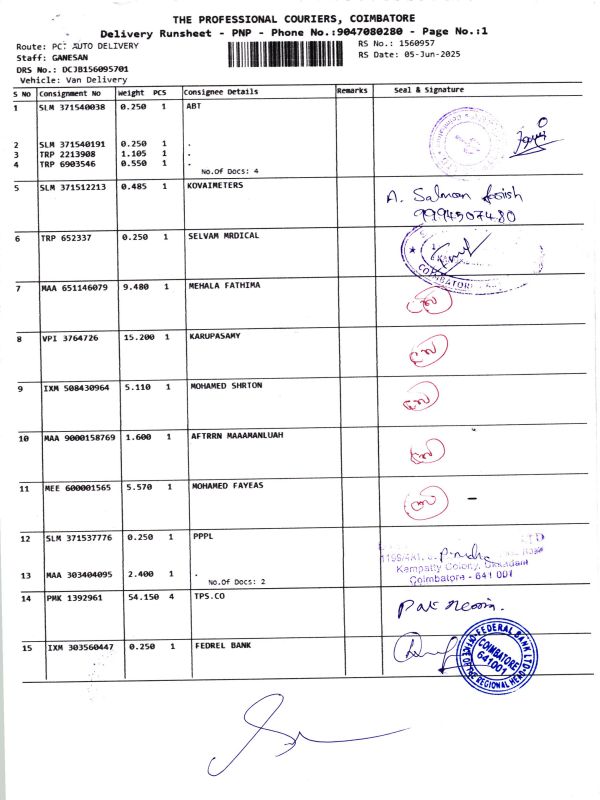 THE PROFESSIONAL COURIERS, COIMBATORE
Delivery Runsheet - PNP - Phone No.:9047080280 - Page No.:1
Route: PC: AUTO DELIVERY
RS No.: 1560957
Staff: GANESAN
RS Date: 05-Jun-2025
DRS No.: DCJB156095701
Vehicle: Van Delivery
S No Consignment No Weight PCS Consignee Details Remarks Seal & Signature
1 SLM 371540038 0.250 1 ABT
2 SLM 371540191 0.250 1 .
3 TRP 2213908 1.105 1 .
4 TRP 6903546 0.550 1 .
No.Of Docs: 4
5 SLM 371512213 0.485 1 KOVAIMETERS A. Salman
9994507480
6 TRP 652337 0.250 1 SELVAM MRDICAL
COIMBATORE
7 MAA 651146079 9.480 1 MEHALA FATHIMA
8 VPI 3764726 15.200 1 KARUPASAMY
9 IXM 508430964 5.110 1 MOHAMED SHRTON
10 MAA 9000158769 1.600 1 AFTRRN MAAAMANLUAH
11 MEE 600001565 5.570 1 MOHAMED FAYEAS
12 SLM 371537776 0.250 1 PPPL
LTD
Kempatty Colony, Ukkadam
13 MAA 303404095 2.400 1 . Coimbatore - 641 001
No.Of Docs: 2
14 PMK 1392961 54.150 4 TPS.CO
15 IXM 303560447 0.250 1 FEDREL BANK
FEDERAL BANK LTD
COIMBATORE
641001
OFFICE OF THE REGIONAL HEAD